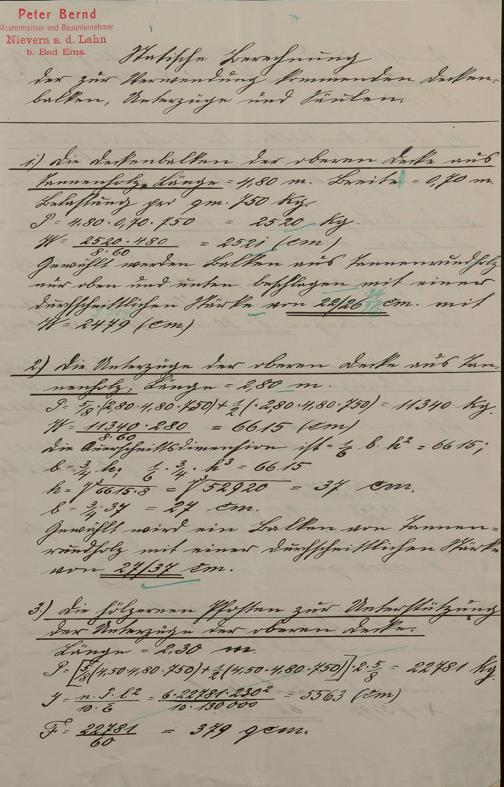 Peter Bernd
Maurermeister und Bauunternehmer
Nievern a. d. Lahn
b. Bad Ems.
Statische Berechnung
der zur Verwendung kommenden Decken-
balken, Unterzüge und Säulen.
1.) Die Deckenbalken der oberen Decke aus
Tannenholz, Länge = 4,80 m. Breite = 0,70 m.
Belastung per qm. 750 Kg.
P = 4.80 · 0,70 · 750 = 2520 Kg.
W = 2520 · 480 / 8 · 60 = 2521 (cm)
Gewählt werden Balken aus Tannenrundholz
nur oben und unten beschlagen mit einer
durchschnittlichen Stärke von 22/26 cm. mit
W = 2479 (cm)
2.) Die Unterzüge der oberen Decke aus Tan-
nenholz, Länge = 2,80 m.
P = 5/8 (2,80 · 4,80 · 750) + 1/2 (· 2.80 · 4,80 · 750) = 11340 Kg.
W = 11340 · 280 / 8 · 60 = 6615 (cm)
Die Querschnittsdimension ist = 1/6 b. h² = 6615;
b = 3/4 h; 1/6 · 3/4 · h³ = 6615
h = ∛6615 · 8 = ∛52920 = 37 cm.
b = 3/4 · 37 = 27 cm.
Gewählt wird ein Balken von Tannen-
rundholz mit einer durchschnittlichen Stärke
von 27/37 cm.
3.) Die hölzernen Pfosten zur Unterstützung
der Unterzüge der oberen Decke.
Länge = 2.30 m.
P = [5/8 (4,50 · 4,80 · 750) + 1/2 (4,50 · 4,80 · 750)] · 2 · 5/8 = 22781 Kg
J = n · P · l² / 10 · E = 6 · 22781 · 230² / 10 · 130000 = 5563 (cm)
F = 22781 / 60 = 379 qcm.